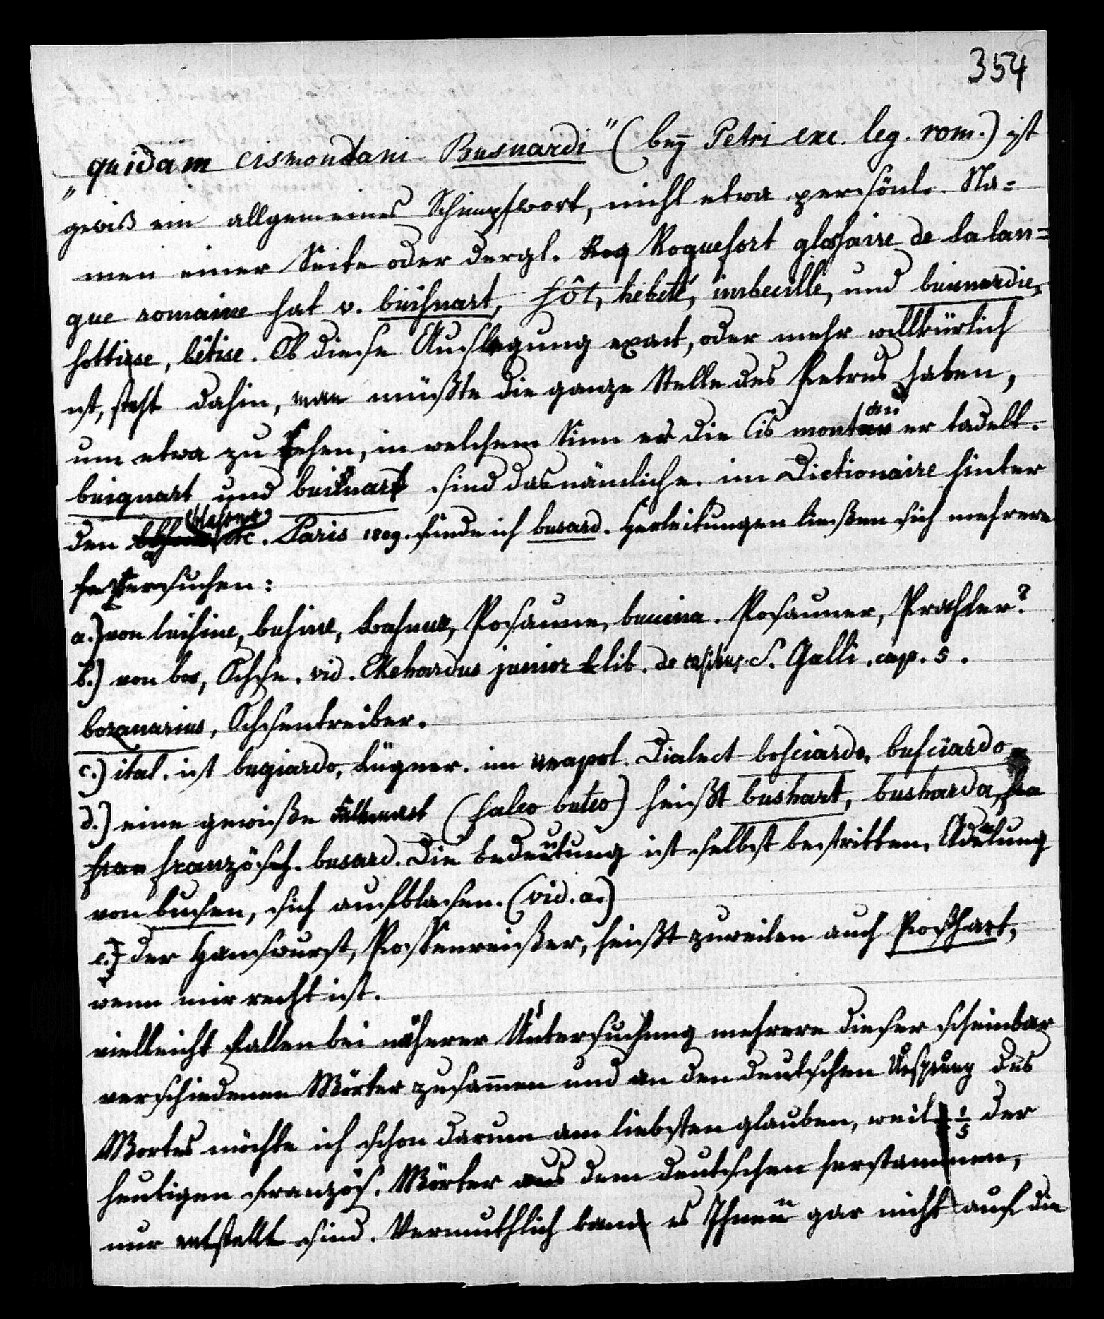 354
„quidam cismontani Busnardi" (bey Petri exc. leg. rom.) ist
gewiß ein allgemeines Schimpfwort, nicht etwa persönl. Na=
men einer Secte oder dergl. Roquefort glossaire de la lan=
gue romaine hat v. buisnart, sôt, hébété, imbecille, und buisnardie,
sottisse, bêtise. Ob diese Auslegung exact, oder mehr willkürlich
ist, steht dahin, man müßte die ganze Stelle des Petrus haben,
um etwa zu sehen, in welchem Sinn er die Cismontan er tadelt.
buignart und buisnart sind das nämliche. im Dictionaire hinter
den Paris 1809. finde ich busard. Herleitungen ließen sich mehrere
versuchen:
a.) von buisine, busine, Posaune, buccina. Posauner, Prahler?
b.) von bos, Ochse. vid. Ekehardus junior lib. de casibus S. Galli. cap. 5.
bozanarius, Ochsentreiber.
c.) ital. ist bugiardo, Lügner. im neapol. Dialect bosciardo, busciardo
d.) eine gewiße Falkenart (falco buteo) heißt bushart, busharda,
französisch. busard. Die Bedeutung ist selbst bestritten, Adelung
von busen, sich aufblasen. (vid. a.)
e.) der Hanswurst, Possenreißer, heißt zuweilen auch Poßhart,
wenn mir recht ist.
vielleicht fallen bei näherer Untersuchung mehrere dieser scheinbar
verschiedenen Wörter zusammen und an den deutschen Ursprung des
Wortes möchte ich schon darum am liebsten glauben, weil 1/5 der
heutigen französ. Wörter aus dem deutschen herstammen,
nur entstellt sind. Vermuthlich kam es Ihnen gar nicht auf die